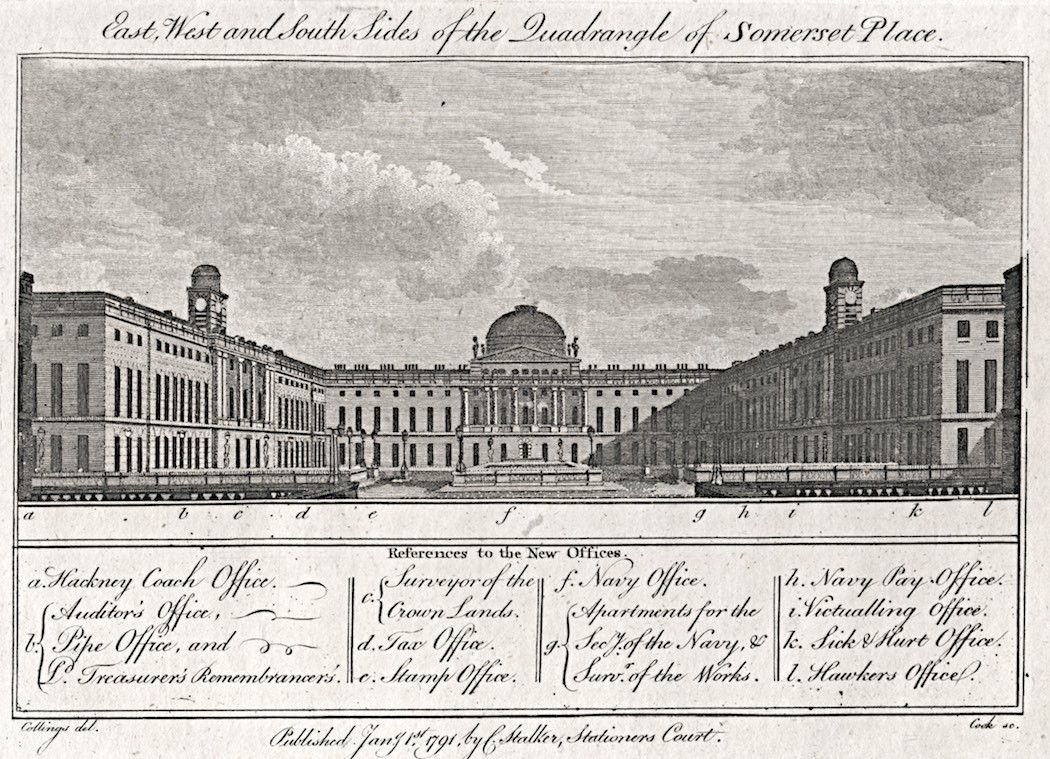 East, West and South Sides of the Quadrangle of Somerset Place.
a b c d e f g h i k l
References to the New Offices.
a. Hackney Coach Office.
b. Auditor's Office,
Pipe Office, and
Ld. Treasurer's Remembrancer's.
c. Surveyor of the
Crown Lands.
d. Tax Office.
e. Stamp Office.
f. Navy Office.
g. Apartments for the
Secy. of the Navy, &
Survr. of the Works.
h. Navy Pay Office.
i. Victualling Office.
k. Sick & Hurt Office.
l. Hawkers Office.
Collings del.
Cook sc.
Published Jany 1st. 1791, by C. Stalker, Stationers Court.